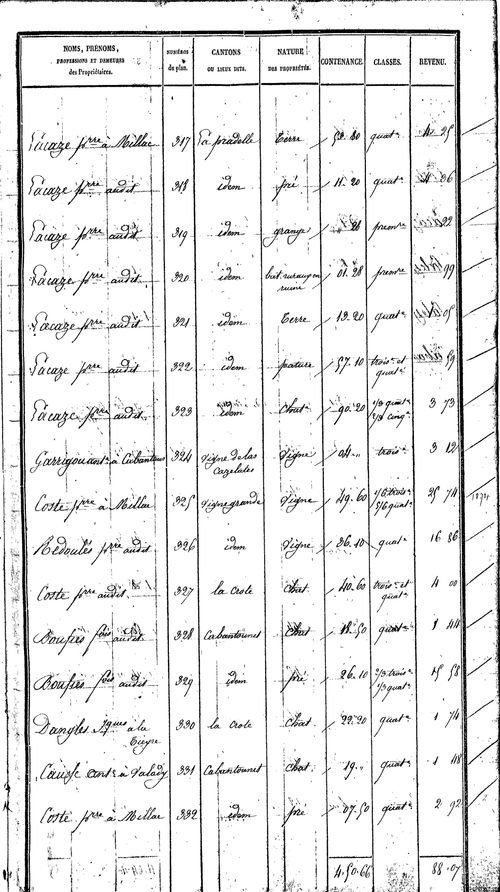 NOMS, PRÉNOMS, PROFESSIONS ET DEMEURES des Propriétaires. NUMÉROS du plan. CANTONS OU LIEUX DITS. NATURE DES PROPRIÉTÉS. CONTENANCE. CLASSES. REVENU.
Lacaze prre à Millac 317 La pradelle Terre 53.80 quat. 4 25
Lacaze prre audit 318 idem pré 11.20 quat. 4 06
Lacaze prre audit 319 idem grange premre 22
Lacaze prre audit 320 idem bat. rural en ruine 01.28 premre 99
Lacaze prre audit 321 idem Terre 13.20 quat. 05
Lacaze prre audit 322 idem pature 57.10 trois. et quat. 59
Lacaze prre audit 323 idem Chat. 90.20 1/3 quat. 2/3 cinq. 3 73
Garrigou ant. à Cabantous 324 Vigne de las cazelates Vigne 04.. trois. 3 12
Coste prre à Millac 325 Vigne grande Vigne 49.60 1/6 trois. 5/6 quat. 25 74
Redoulès prre audit 326 idem Vigne 36.10 quat. 16 86
Coste prre audit 327 la Crote Chat. 40.60 trois. et quat. 4 00
Boufirs fois audit 328 Cabantounet Chat. 18.50 quat. 1 44
Boufirs fois audit 329 idem pré 26.10 2/3 trois. 1/3 quat. 15 58
Dangles Jques à la 330 la Crote Chat. 22.20 quat. 1 74
Causse ant. à Valady 331 Cabantounet Chat. 19.. quat. 1 48
Coste pre à Millac 332 idem pré 07.50 quat. 2 92
4.50.66 88.07